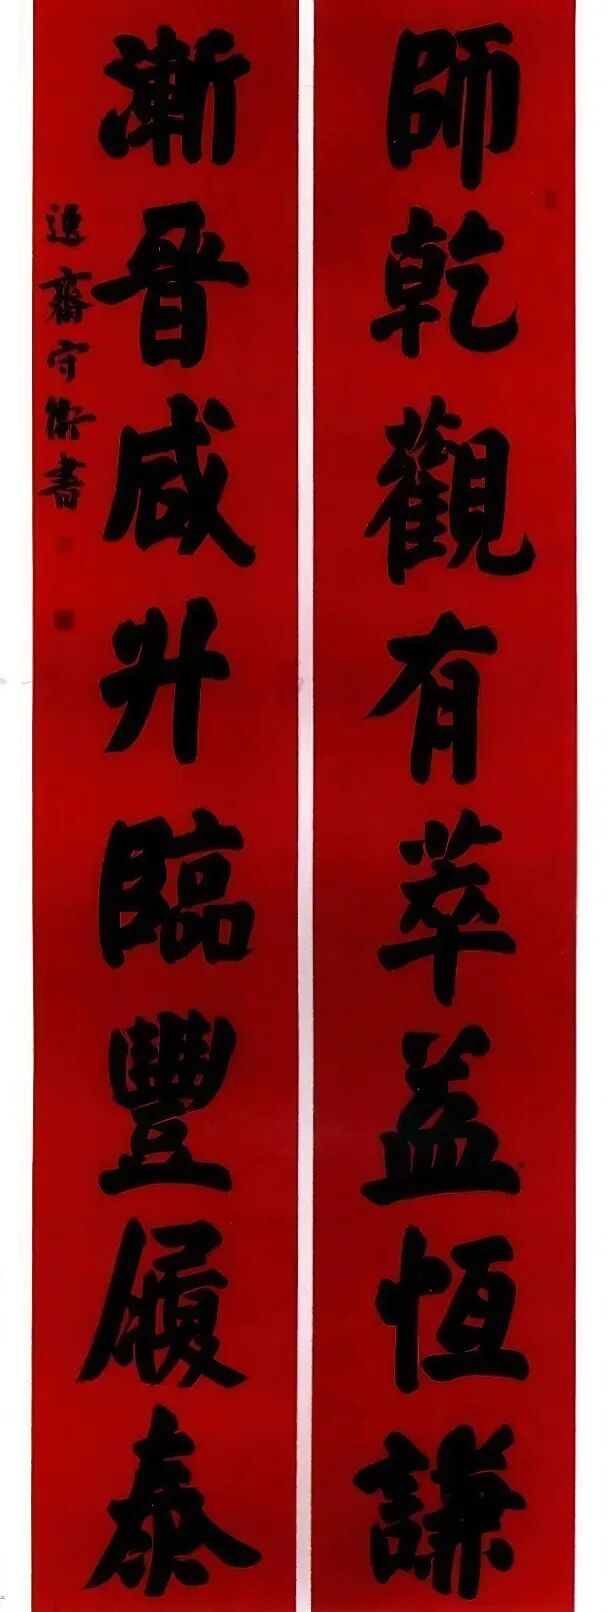 師乾觀有萃益恆謙
漸晉咸升臨豐履泰
齋守衡書